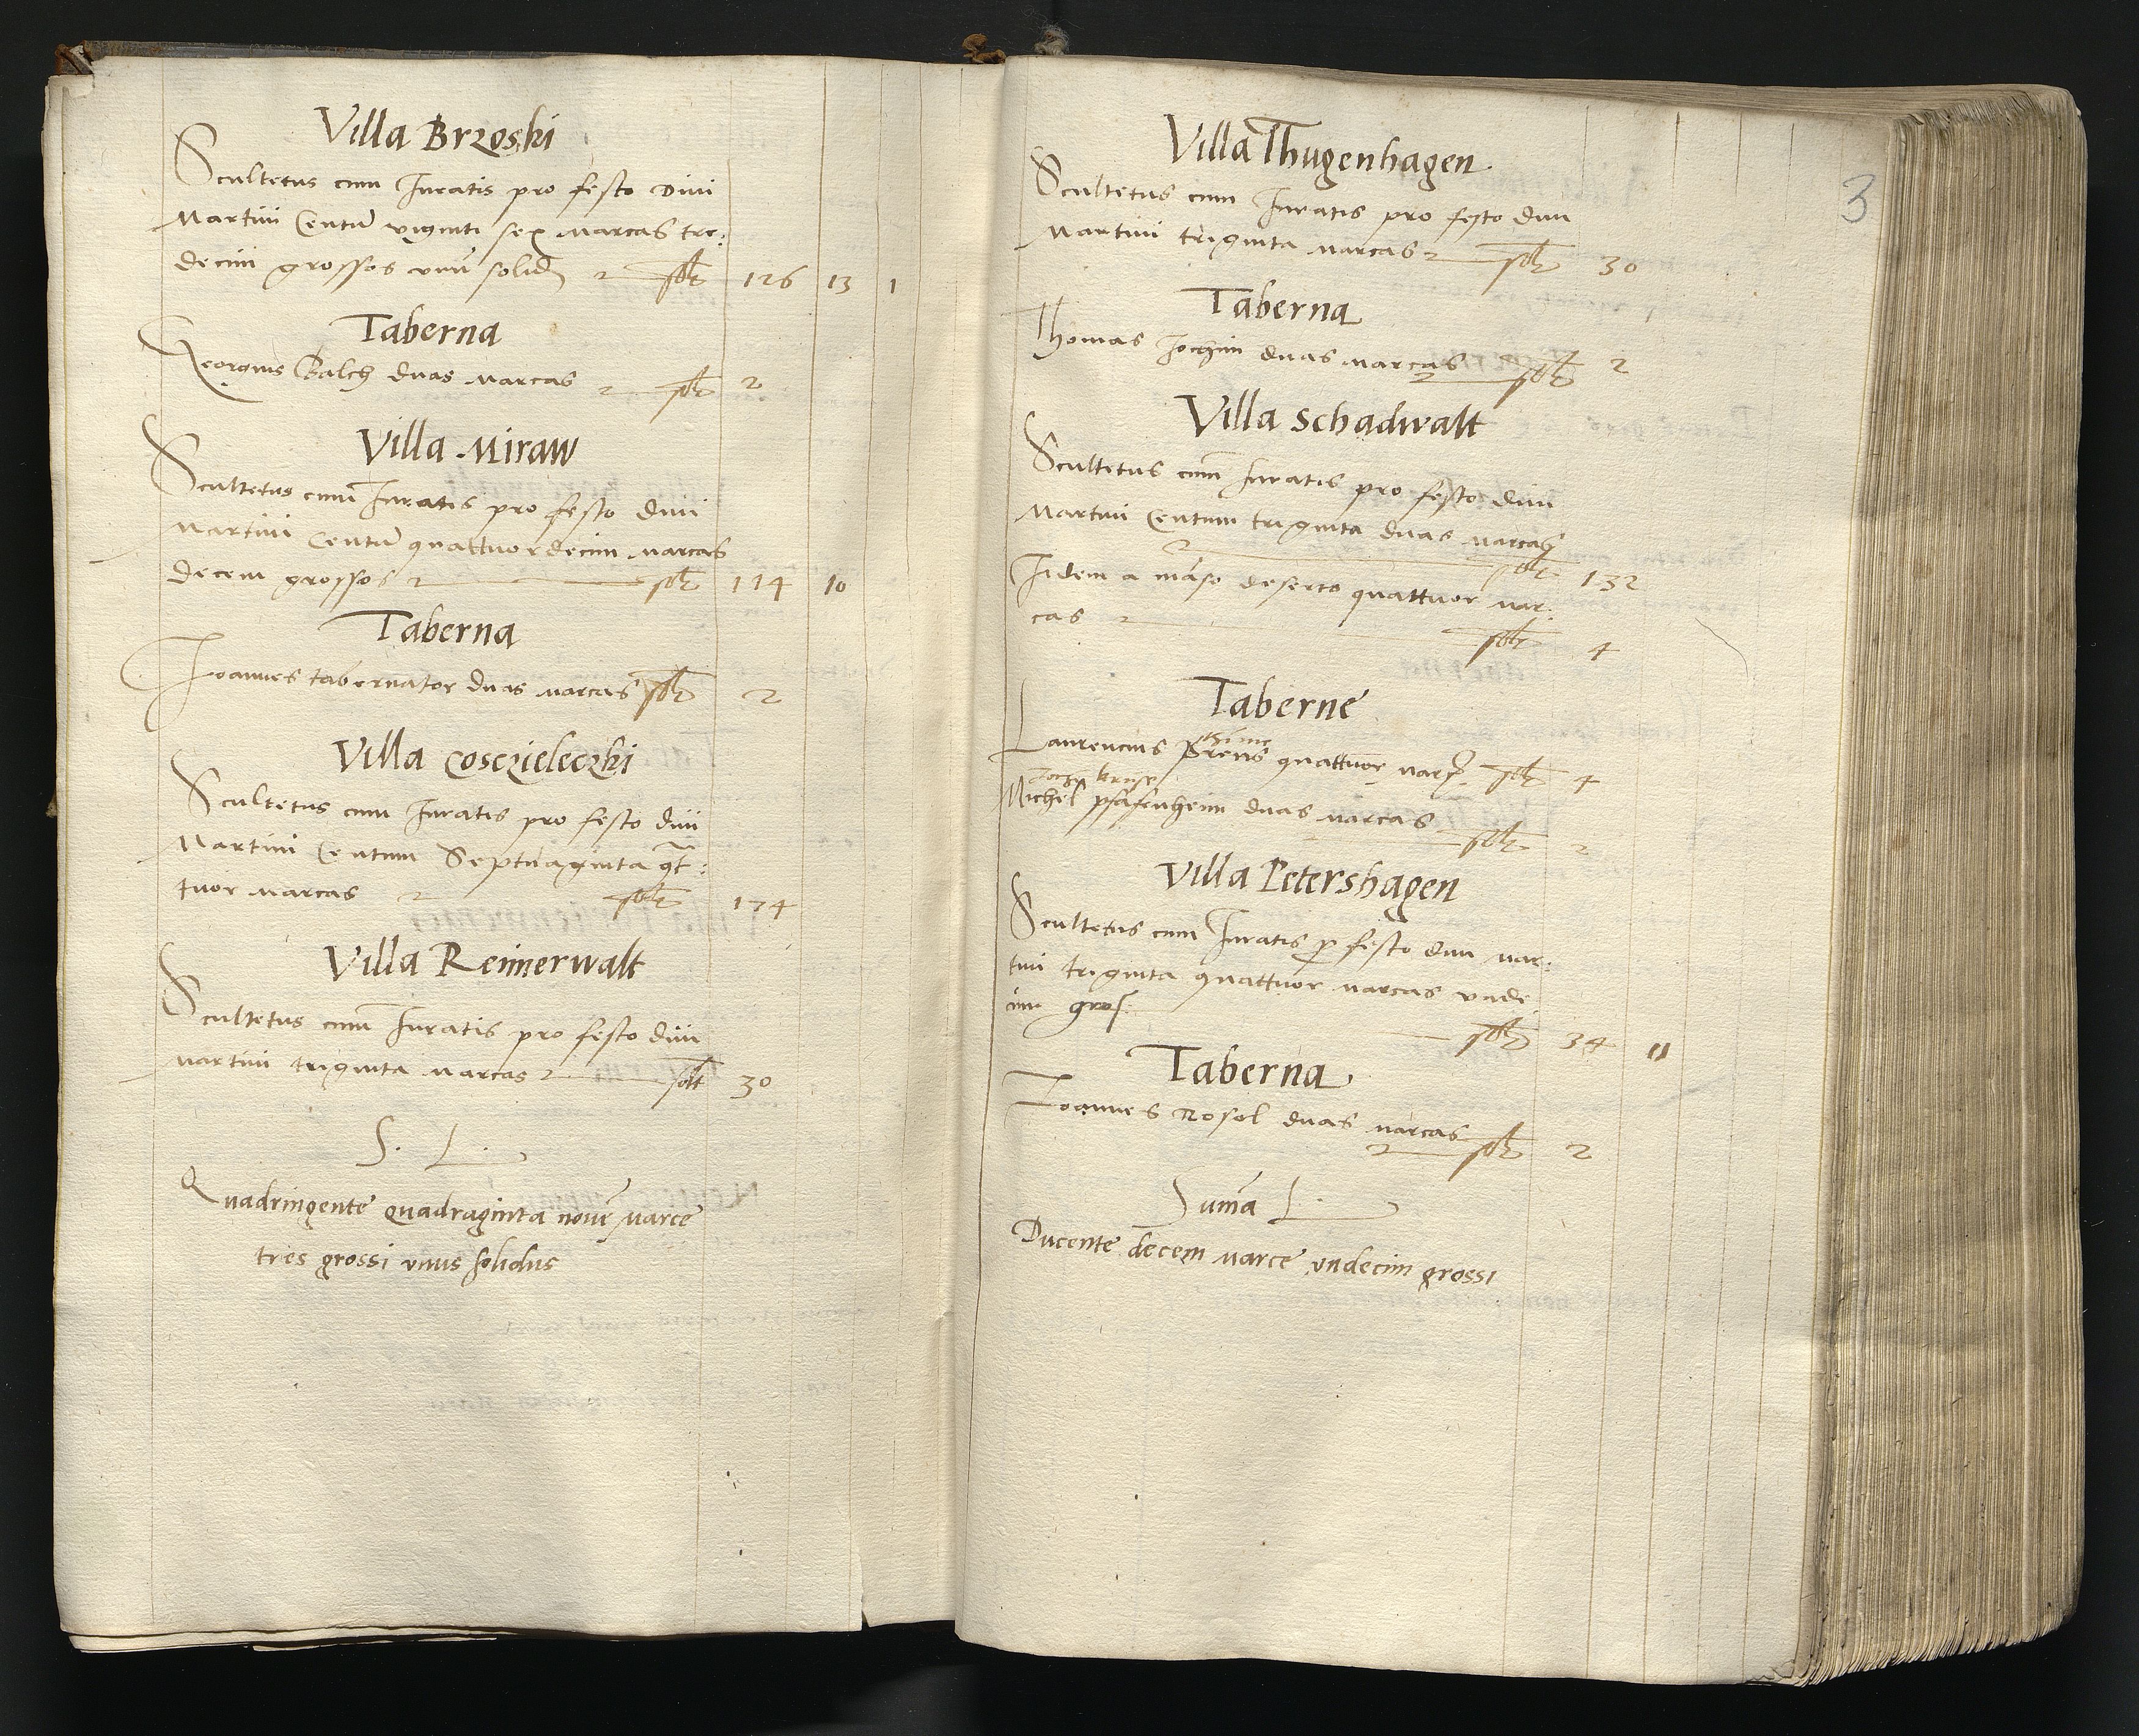 Villa Brzoski
Scultetus cum Juratis pro festo Divi
Martini Centū viginti sex marcas tre:
decim grossos unū solid 126 13 1
Taberna
Georgius Balch duas marcas 2
Villa Miraw
Scultetus cum Juratis pro festo divi
Martini Centū quattuordecim marcas
decem grossos 114 10
Taberna
Joannes tabernator duas marcas 2
Villa Cosczieleczki
Scultetus cum Juratis pro festo divi
Martini Centum Septuaginta qt:
tuor marcas 174
Villa Reimerwalt
Scultetus cum Juratis pro festo divi
martini triginta marcas solt 30
S. L.
Quadringente quadraginta novē marce
tres grossi unus solidus
3
Villa Thugenhagen
Scultetus cum Juratis pro festo divi
Martini triginta marcas 30
Taberna
Thomas Jochim duas marcas 2
Villa Schadwalt
Scultetus cum Juratis pro festo divi
Martini Centum triginta duas marcas
132
Iidem a māso deserto quattuor mar:
cas 4
Taberne
Laurencius quattuor marc 4
Kruse
Michel pfafenheim duas marcas 2
Villa Petershagen
Scultetus cum Juratis p festo divi mar:
tini triginta quattuor marcas unde
cim gros. 34 11
Taberna
Joannes Nosol duas marcas 2
Suma L.
Ducente decem marce undecim grossi